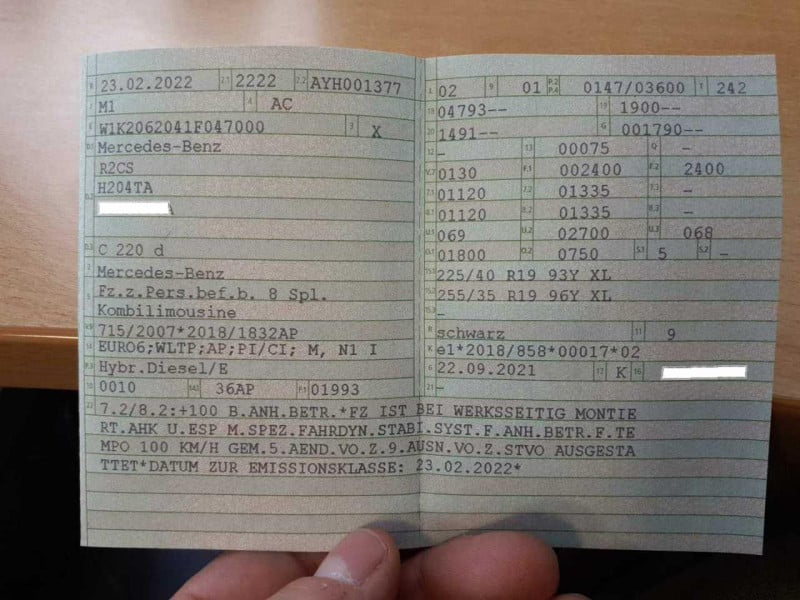 B 23.02.2022 2.1 2222 2.2 AYH001377
J M1 4 AC
E W1K2062041F047000 3 X
D.1 Mercedes-Benz
R2CS
D.2 H204TA
D.3 C 220 d
2 Mercedes-Benz
5 Fz.z.Pers.bef.b. 8 Spl.
Kombilimousine
V.9 715/2007*2018/1832AP
14 EURO6;WLTP;AP;PI/CI; M, N1 I
P.3 Hybr.Diesel/E
10 0010 14.1 36AP P.1 01993
L 02 9 01 P.2 P.4 0147/03600 T 242
18 04793-- 19 1900--
20 1491-- G 001790--
12 - 13 00075 Q -
V.7 0130 F.1 002400 F.2 2400
7.1 01120 7.2 01335 7.3 -
8.1 01120 8.2 01335 8.3 -
U.1 069 U.2 02700 U.3 068
O.1 01800 O.2 0750 S.1 5 S.2 -
15.1 225/40 R19 93Y XL
15.2 255/35 R19 96Y XL
15.3 -
R schwarz 11 9
K e1*2018/858*00017*02
6 22.09.2021 17 K 16
21 -
22 7.2/8.2:+100 B.ANH.BETR.*FZ IST BEI WERKSSEITIG MONTIE
RT.AHK U.ESP M.SPEZ.FAHRDYN.STABI.SYST.F.ANH.BETR.F.TE
MPO 100 KM/H GEM.5.AEND.VO.Z.9.AUSN.VO.Z.STVO AUSGESTA
TTET*DATUM ZUR EMISSIONSKLASSE: 23.02.2022*